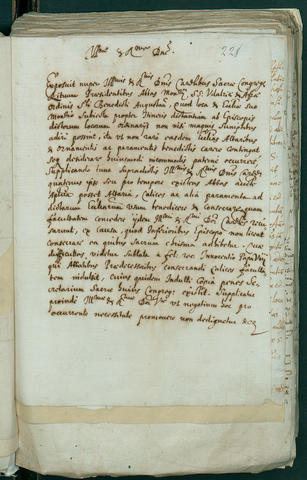 Ill.mi & R.mi Dni.
221
Exposuit nuper Ill.mis & R.mis Dnis Cardlibus Sacre Congreg.
Rituum Præsidentibus Abbas Mon.rij S.S. Vdalrici & Afræ
Ordinis S.ti Benedicti Augustæ, quod loca & Eccliæ suo
Mon.rio Subiecta propter Itineris distantiam ab Episcopis
dictorum locorum ordinarijs non nisi magnis sumptibus
adiri possent, ita ut non raro eædem Eccliæ Altaribus
& Ornamentis ac paramentis benedictis carere contingat
Seq. desiderare huiusmodi incommodis paterne occurrere,
Supplicando supradictis Ill.mis & R.mis Dnis
quatenus ipsi seu pro tempore existens Abbas
posset Altaria, Calices ac alia paramenta ad
dictarum Ecclarum usum benedicere & Consecrare, quam
facultatem concedere ijdem Ill.mi & R.mi Dni
ex causa, quod Inferioribus Episcopo non liceat
Consecrare ea quibus Sacrum chrisma adhibetur. Cum
difficultas videtur sublata à fel. rec. Innocentio Papa
qui Abbatibus Prædecessoribus consecrandi calices faculta-
tem indulsit, cuius quidem Indulti Copia penes Se-
cretarium Sacræ huius Congreg. existit. Supplicatur
proinde Ill.mis & R.mis ut negotium hoc pro
occurrenti necessitate promovere non dedignetur